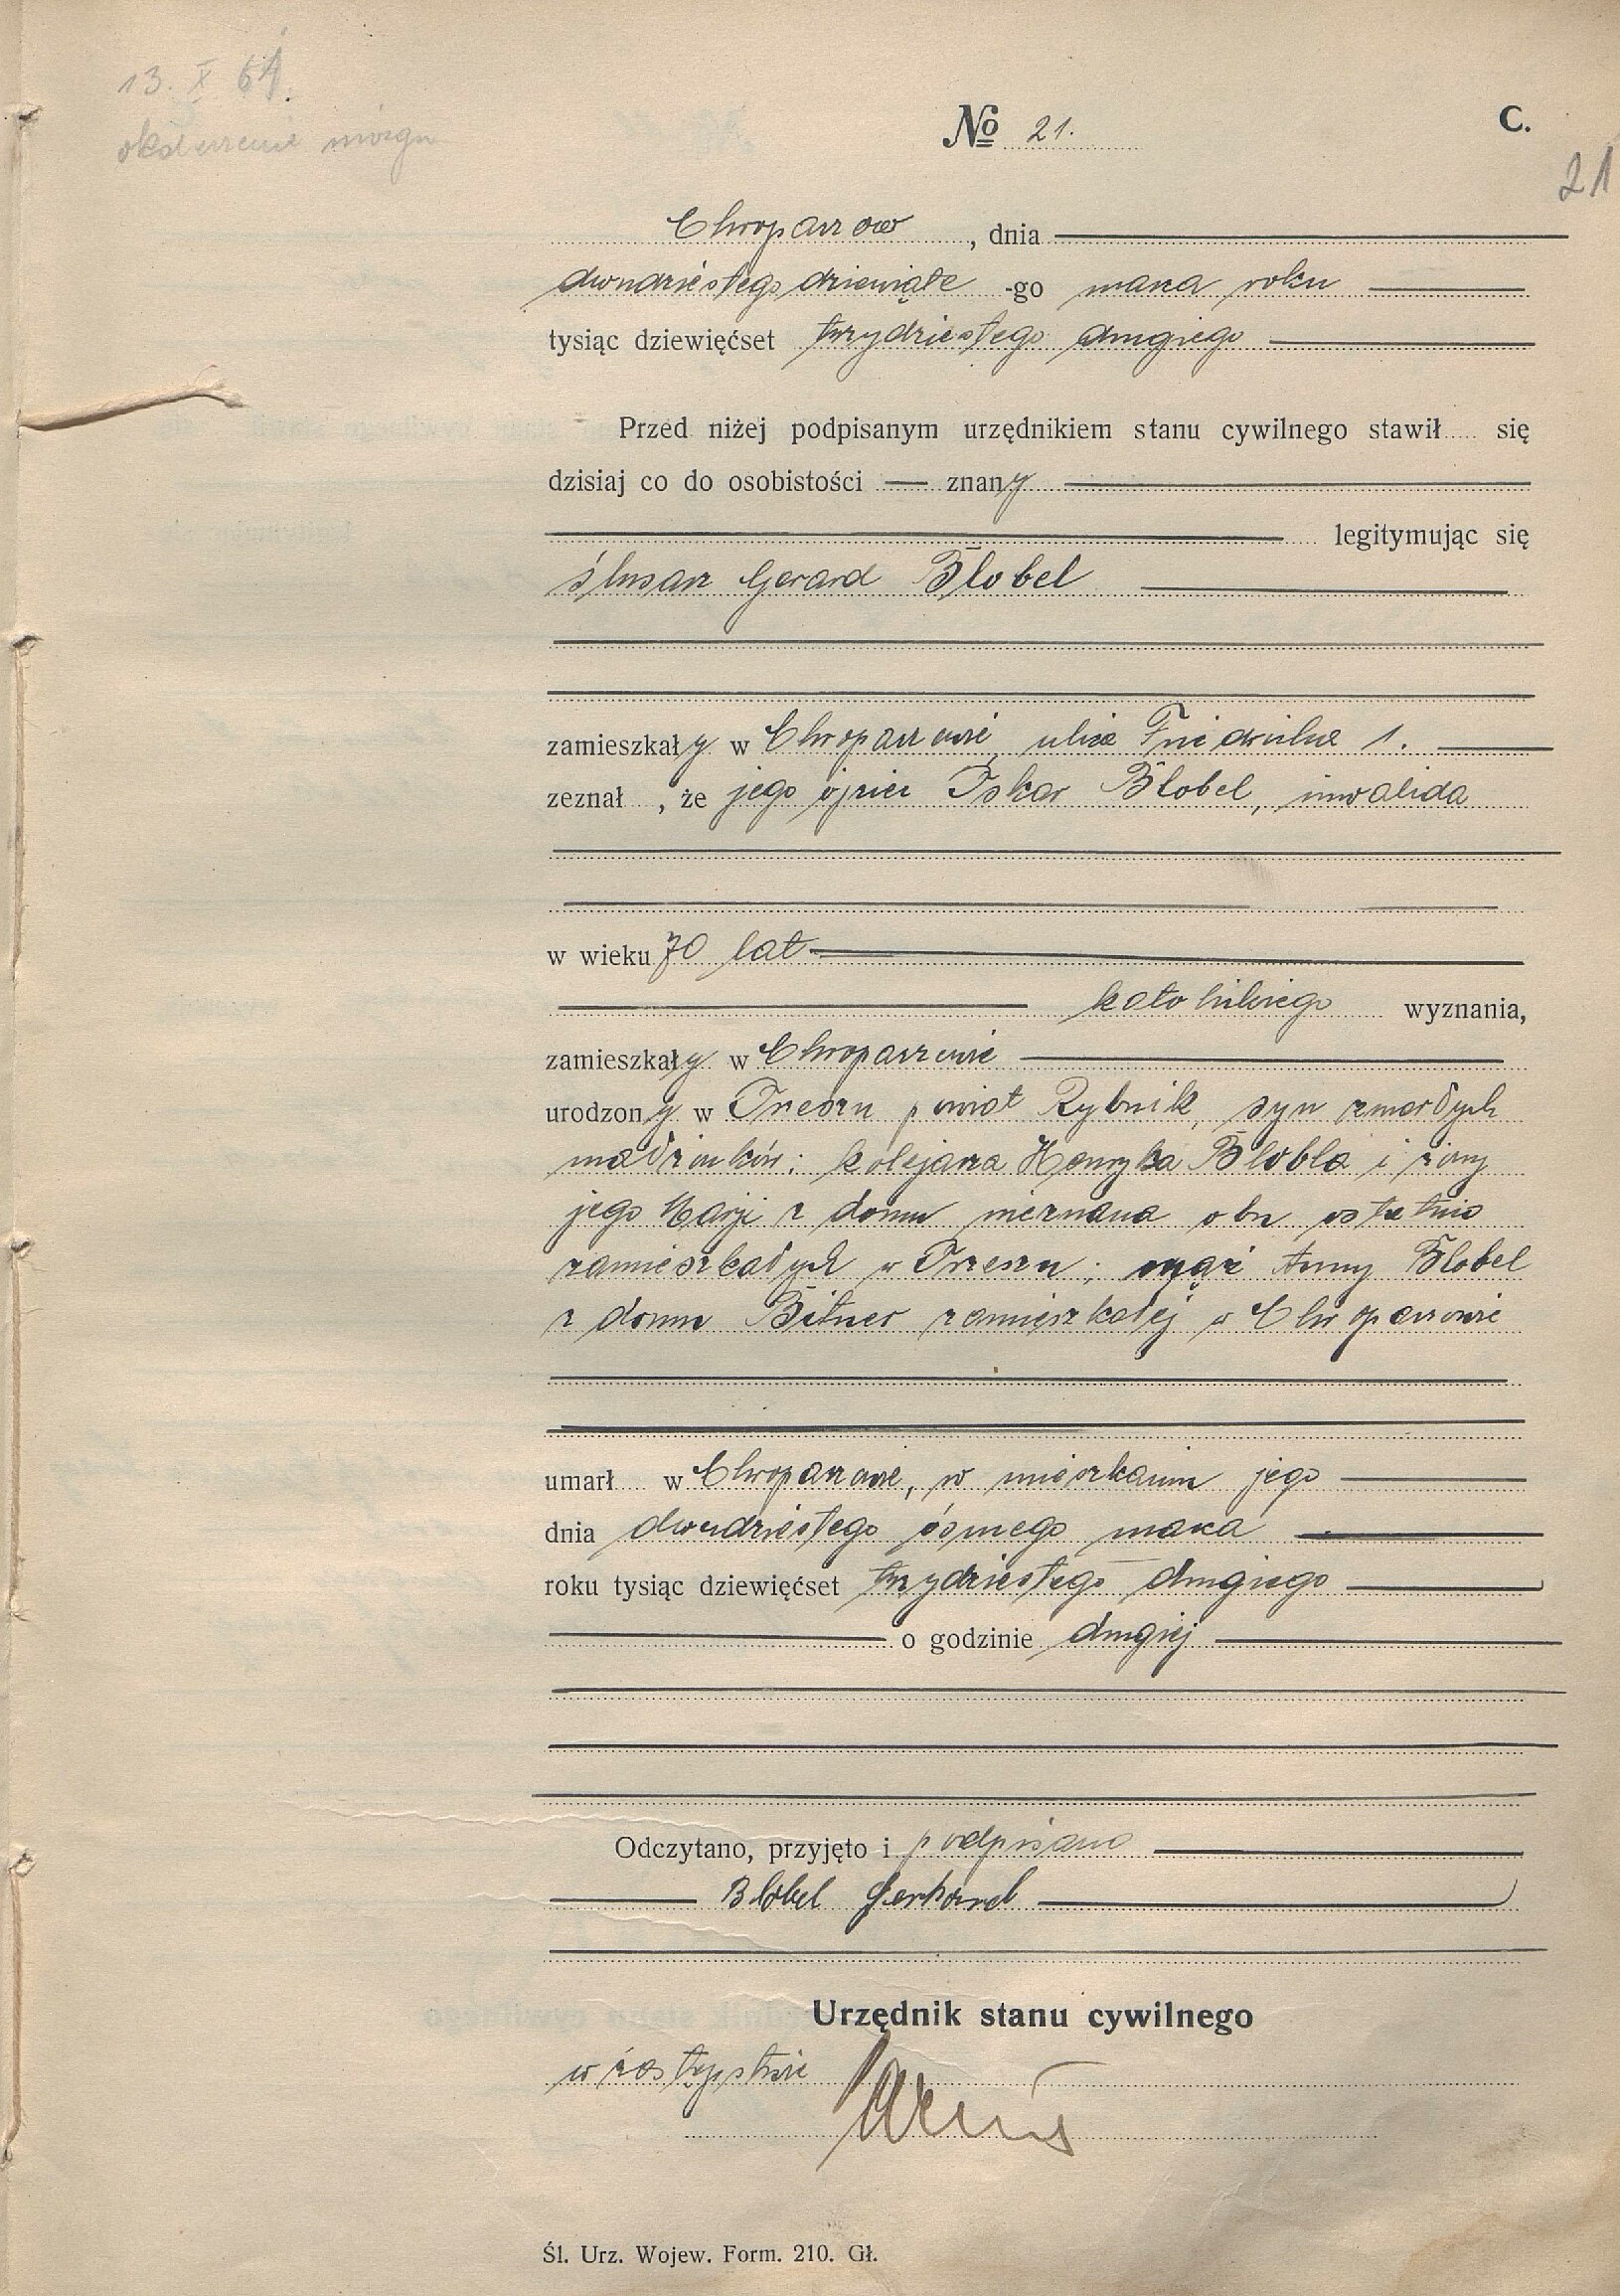 13. X 61.
№ 21.
C.
21
Chropaczów, dnia
dwudziestego dziewiąte -go marca roku
tysiąc dziewięćset trzydziestego drugiego
Przed niżej podpisanym urzędnikiem stanu cywilnego stawił się
dzisiaj co do osobistości — znany
legitymując się
ślusarz Gerard Blobel
zamieszkały w Chropaczowie, ulica 1.
zeznał , że jego ojciec Oskar Blobel, inwalida
w wieku 70 lat
katolickiego wyznania,
zamieszkały w Chropaczowie
urodzony w Orzeszu powiat Rybnik, syn zmarłych
małżonków: kolejarza Henryka Blobla i żony
jego Marji z domu nieznana obu ostatnio
zamieszkałych w Orzeszu; mąż Anny Blobel
z domu Bitner zamieszkałej w Chropaczowie
umarł w Chropaczowie, w mieszkaniu jego
dnia dwudziestego ósmego marca
roku tysiąc dziewięćset trzydziestego drugiego
o godzinie drugiej
Odczytano, przyjęto i podpisano
Blobel Gerhard
Urzędnik stanu cywilnego
w zastępstwie
Śl. Urz. Wojew. Form. 210. Gł.